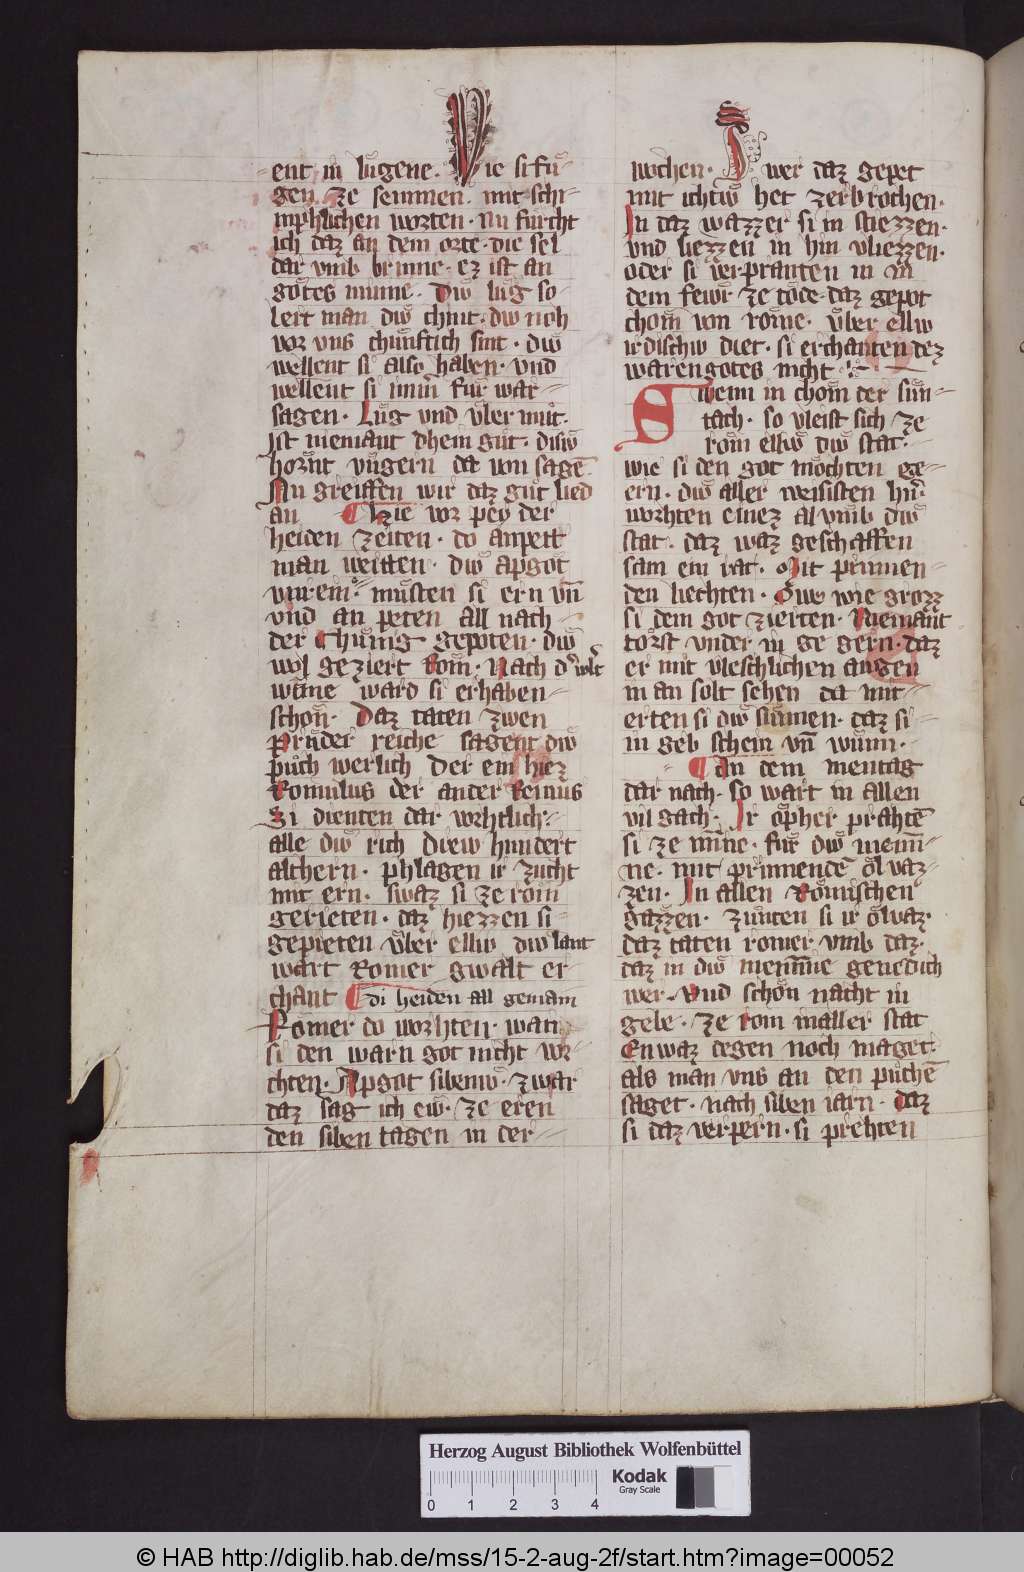 ent in lugene. Wie si fů-
gen ze semmen. mit schi
mphlichen worten. nu furcht
ich daz an dem orte. die sel
dar vmb brinne. ez ist an
gotes minne. Diw lug so-
lert man diw chint. diw noh
vor vns chůnftich sint. diw
wellent si also haben. vnd
wellent si imm̄ fur war-
sagen. Lug vnd vber můt.
ist niemant dhein gůt. disiw
horent vngern da von sagē
Nu greiffen wir daz gůt lied
an ¶ hie vor pey der
heiden zeiten. do anpett
man weitten. diw apgot
vnreine. můsten si ern vn̄
vnd an peten all nach-
der Chůnig gepoten. diw
wol geziert Rom. Nach d̕ w̕lt
wūne ward si erhaben-
schon. Daz taten zwen
Průder reiche sagent diw
půch werlich Der ein hiez
Romulus der ander Remus
Si dienten dar worhtlich.
alle diw rich driew hundert
althern. phlagen ir zucht
mit ern. swaz si ze rom
gerieten. daz hiezzen si-
gepieten vber elliw diw lant
wart Romer gwalt er-
chant ¶ di heiden all gemain
Romer do worhten. wan
si den warn got nicht vor-
chten. Apgot sibeniw. zwar
daz sag ich ew. ze eren
den siben tagen in der-
wochen. Swer daz gepet
mit ichtiw het zerbrochen.
In daz wazzer si in stiezzen.
vnd liezzen in hin vliezzen.
oder si verpranten in in
dem fewr ze tode. daz gepot
chom von rome. vber elliw
irdischiw diet. si erchanten dez
waren gotes nicht
Swenn in chom der sun-
tach. so vleist sich ze
rom elliw diw stat.
wie si den got mochten ge-
ern. diw aller weisisten hr̄.
worhten einez al vmb diw
stat. daz waz geschaffen
sam ein rat. Mit prinnen-
den liechten. Owe wie grozz
si dem got zierten. Niemant
torst vnder in ge gern. daz
er mit vleschlichen augen
man solt sehen da mit-
erten si diw sunnen. daz si-
in geb schein vn̄ wunn.
¶ an dem mentag
dar nach. so wart in allen
vil gach. Ir opher prahtē
si ze minne. fur diw menni-
ne. mit prinnendē olvaz-
zen. In allen Romischen
gazzen. zunten si ir olvaz.
daz taten romer vmb daz.
daz in diw mennine genedich
wer. Vnd schon nacht in
gebe. ze rom in aller stat
Enwaz degen noch maget.
als man vns an den půchē
saget. nach siben iarn. daz
si daz verpern. si prehten
Herzog August Bibliothek Wolfenbüttel
0 1 2 3 4
Kodak
Gray Scale
© HAB http://diglib.hab.de/mss/15-2-aug-2f/start.htm?image=00052